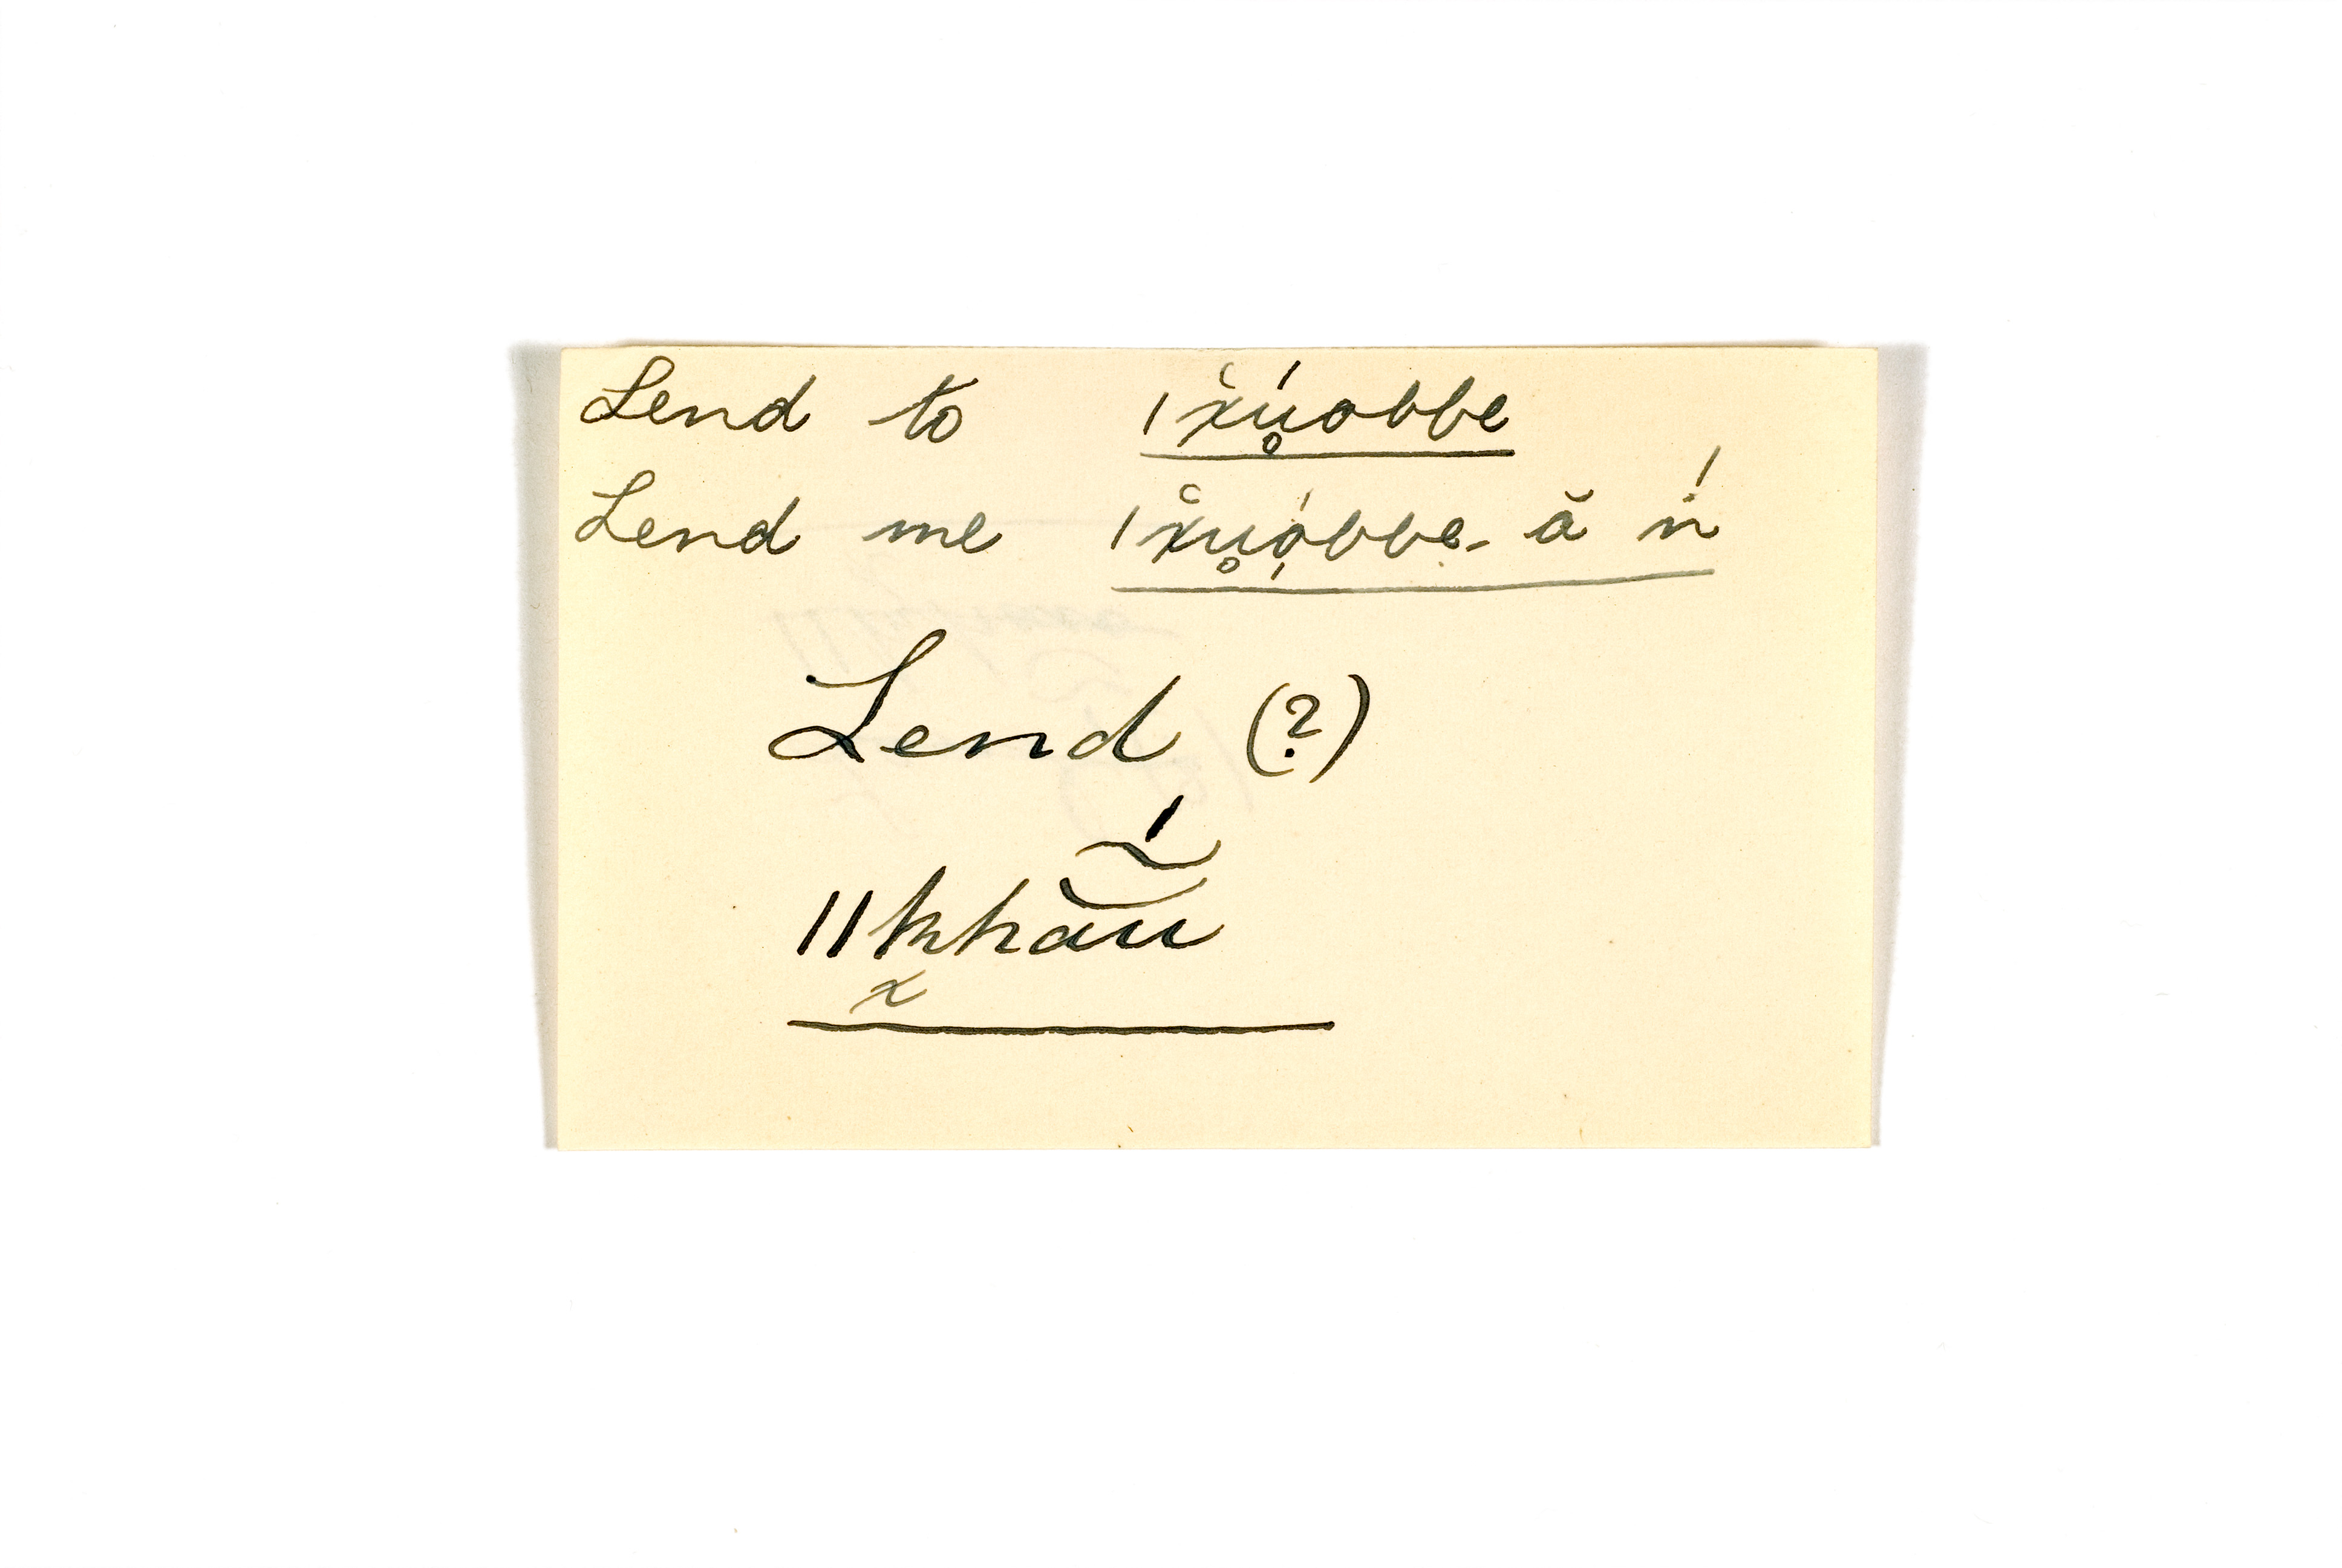 Lend to ǀx̌ú̥obbe
Lend me ǀx̌u̥ọ́bbe- ă ń
Lend (?)
ǁk͓hãŭ́